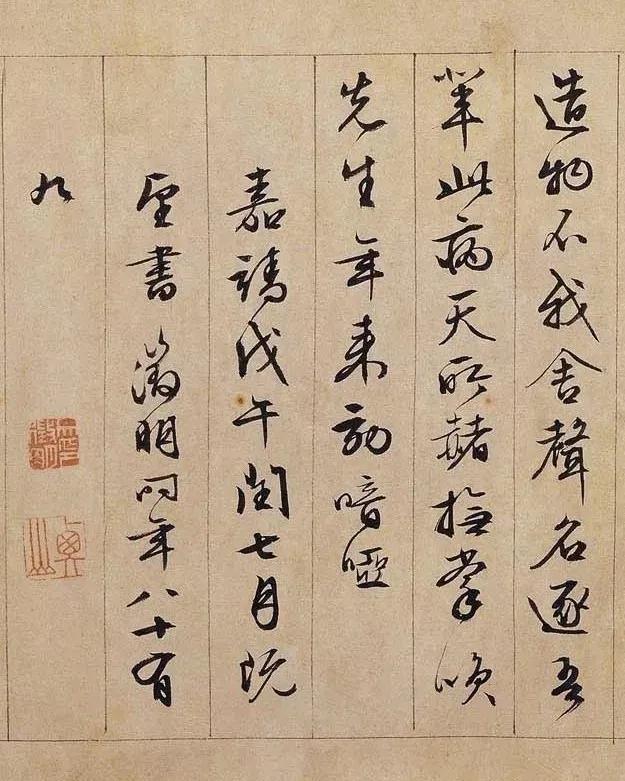 造物不我舍聲名逐吾
輩此病天所赭撫掌咲
先生年来効喑啞
嘉靖戊午閏七月既
望書徵明時年八十有
九